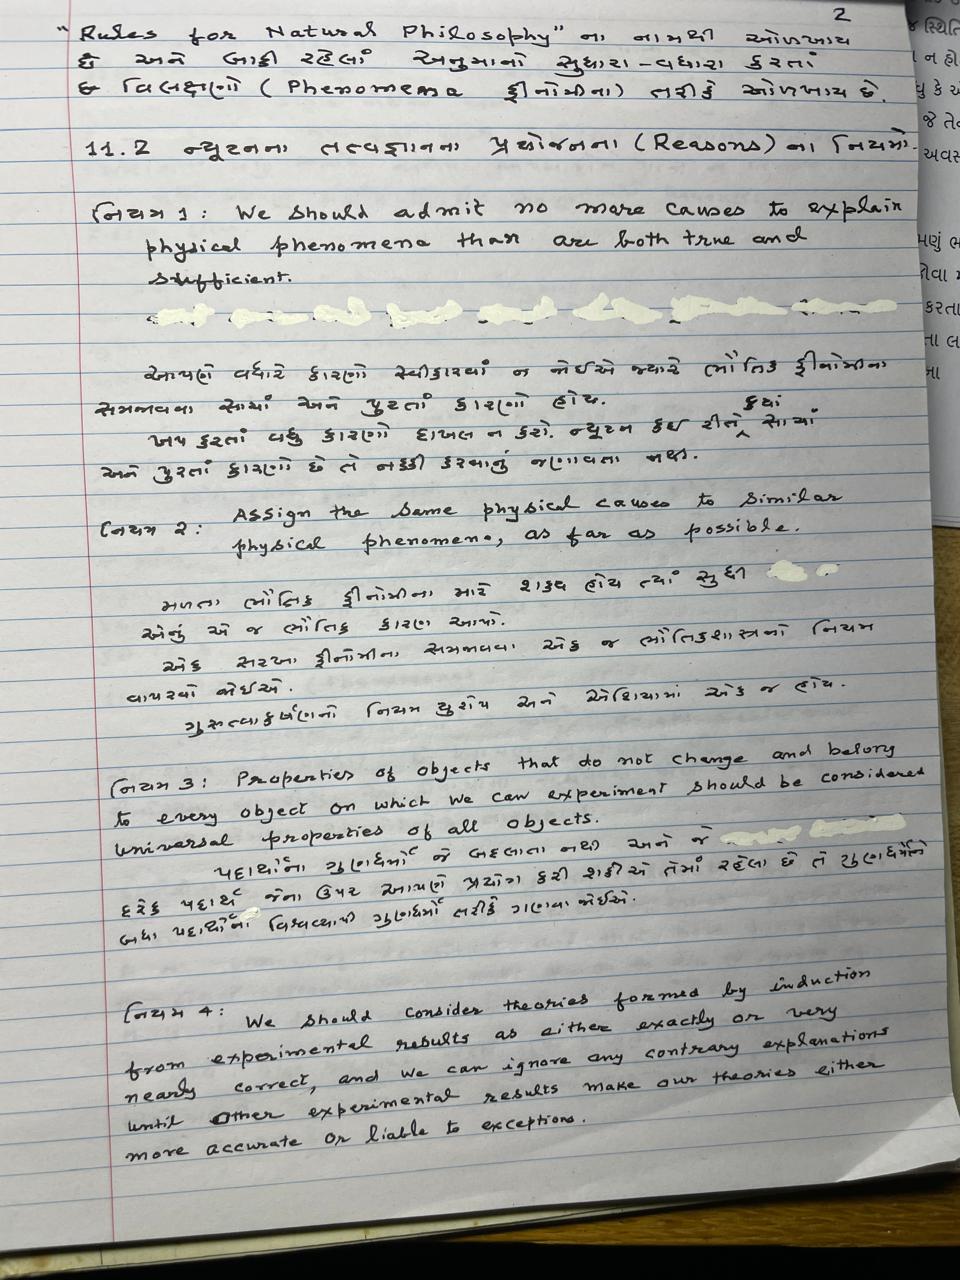 2
"Rules for Natural Philosophy" ના નામથી ઓળખાય
છે અને બાકી રહેલાં અનુમાનો સુધારા-વધારા કરતાં
છ વિલક્ષણો (Phenomena ફીનોમીના) તરીકે ઓળખાય છે.
11.2 ન્યૂટનના તત્વજ્ઞાનના પ્રયોજનના (Reasons) ના નિયમો.
નિયમ 1: We should admit no more causes to explain
physical phenomena than are both true and
sufficient.
આપણે વધારે કારણો સ્વીકારવાં ન જોઈએ જ્યારે ભૌતિક ફીનોમીના
સમજાવવા સાચાં અને પુરતાં કારણો હોય.
ખપ કરતાં વધુ કારણો દાખલ ન કરો. ન્યૂટન કઈ રીતે કયાં સાચાં
અને પુરતાં કારણો છે તે નક્કી કરવાનું જણાવતા નથી.
નિયમ 2: Assign the same physical causes to similar
physical phenomena, as far as possible.
મળતા ભૌતિક ફીનોમીના માટે શક્ય હોય ત્યાં સુધી
એનું એ જ ભૌતિક કારણ આપો.
એક સરખા ફીનોમીના સમજાવવા એક જ ભૌતિકશાસ્ત્રનો નિયમ
વાપરવો જોઈએ.
ગુરુત્વાકર્ષણનો નિયમ યુરોપ અને એશિયામાં એક જ હોય.
નિયમ 3: Properties of objects that do not change and belong
to every object on which we can experiment should be considered
universal properties of all objects.
પદાર્થોના ગુણધર્મો જે બદલાતા નથી અને જે
દરેક પદાર્થ જેના ઉપર આપણે પ્રયોગ કરી શકીએ તેમાં રહેલા છે તે ગુણધર્મોને
બધા પદાર્થોના વિશ્વવ્યાપી ગુણધર્મો તરીકે ગણવા જોઈએ.
નિયમ 4: We should consider theories formed by induction
from experimental results as either exactly or very
nearly correct, and we can ignore any contrary explanations
until other experimental results make our theories either
more accurate or liable to exceptions.